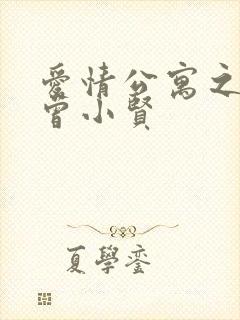 愛情公寓之
曾小賢
夏學鑾